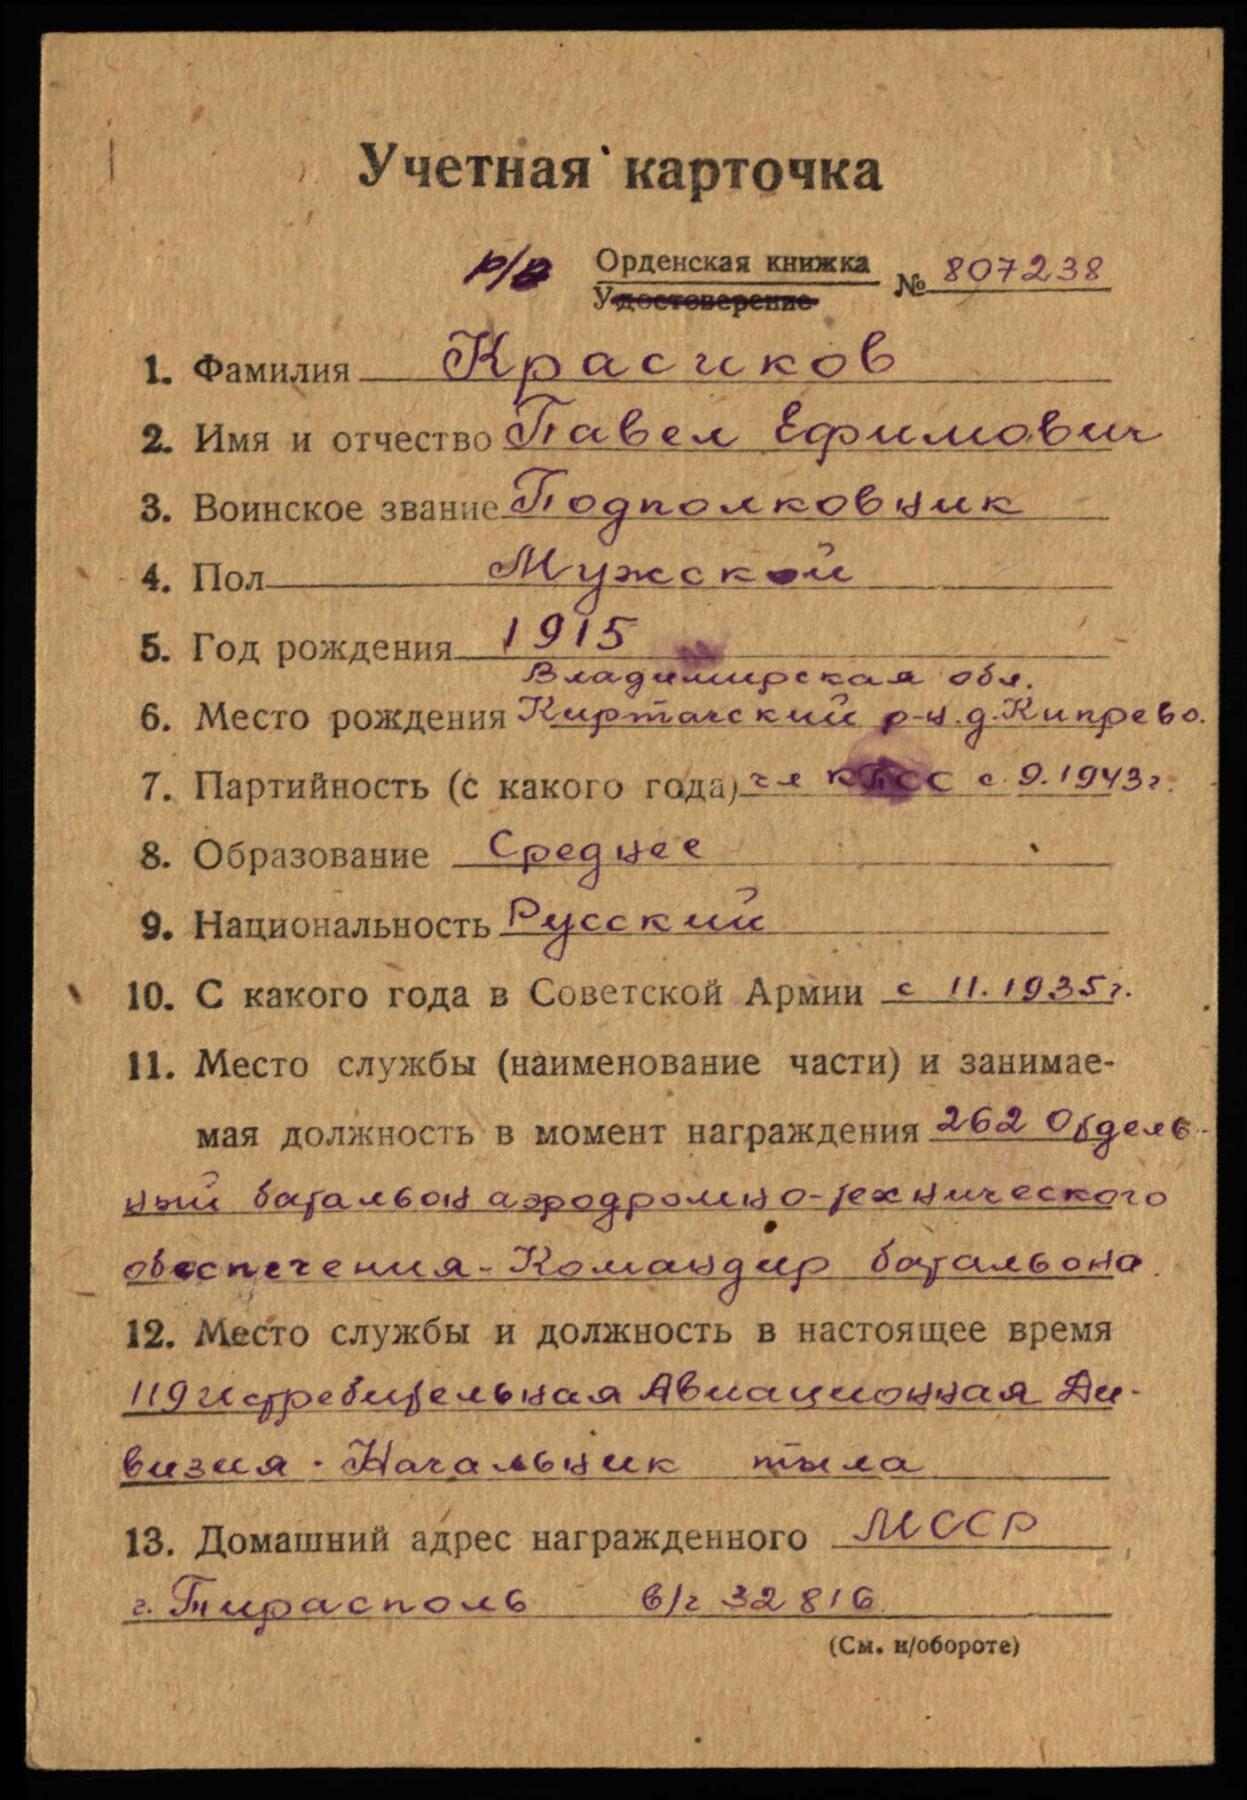 Учетная карточка
р/в Орденская книжка № 807238
Удостоверение
1. Фамилия Красиков
2. Имя и отчество Павел Ефимович
3. Воинское звание Подполковник
4. Пол Мужской
5. Год рождения 1915
Владимирская обл.
6. Место рождения Киртачский р-н. д. Кипрево.
7. Партийность (с какого года) чл КПСС с 9.1943г.
8. Образование Среднее
9. Национальность Русский
10. С какого года в Советской Армии с 11.1935г.
11. Место службы (наименование части) и занимае-
мая должность в момент награждения 262 Отдель-
ный батальон аэродромно-технического
обеспечения - Командир батальона.
12. Место службы и должность в настоящее время
119 Истребительная Авиационная Ди-
визия - Начальник тыла
13. Домашний адрес награжденного МССР
г. Тирасполь в/ч 32816
(См. н/обороте)